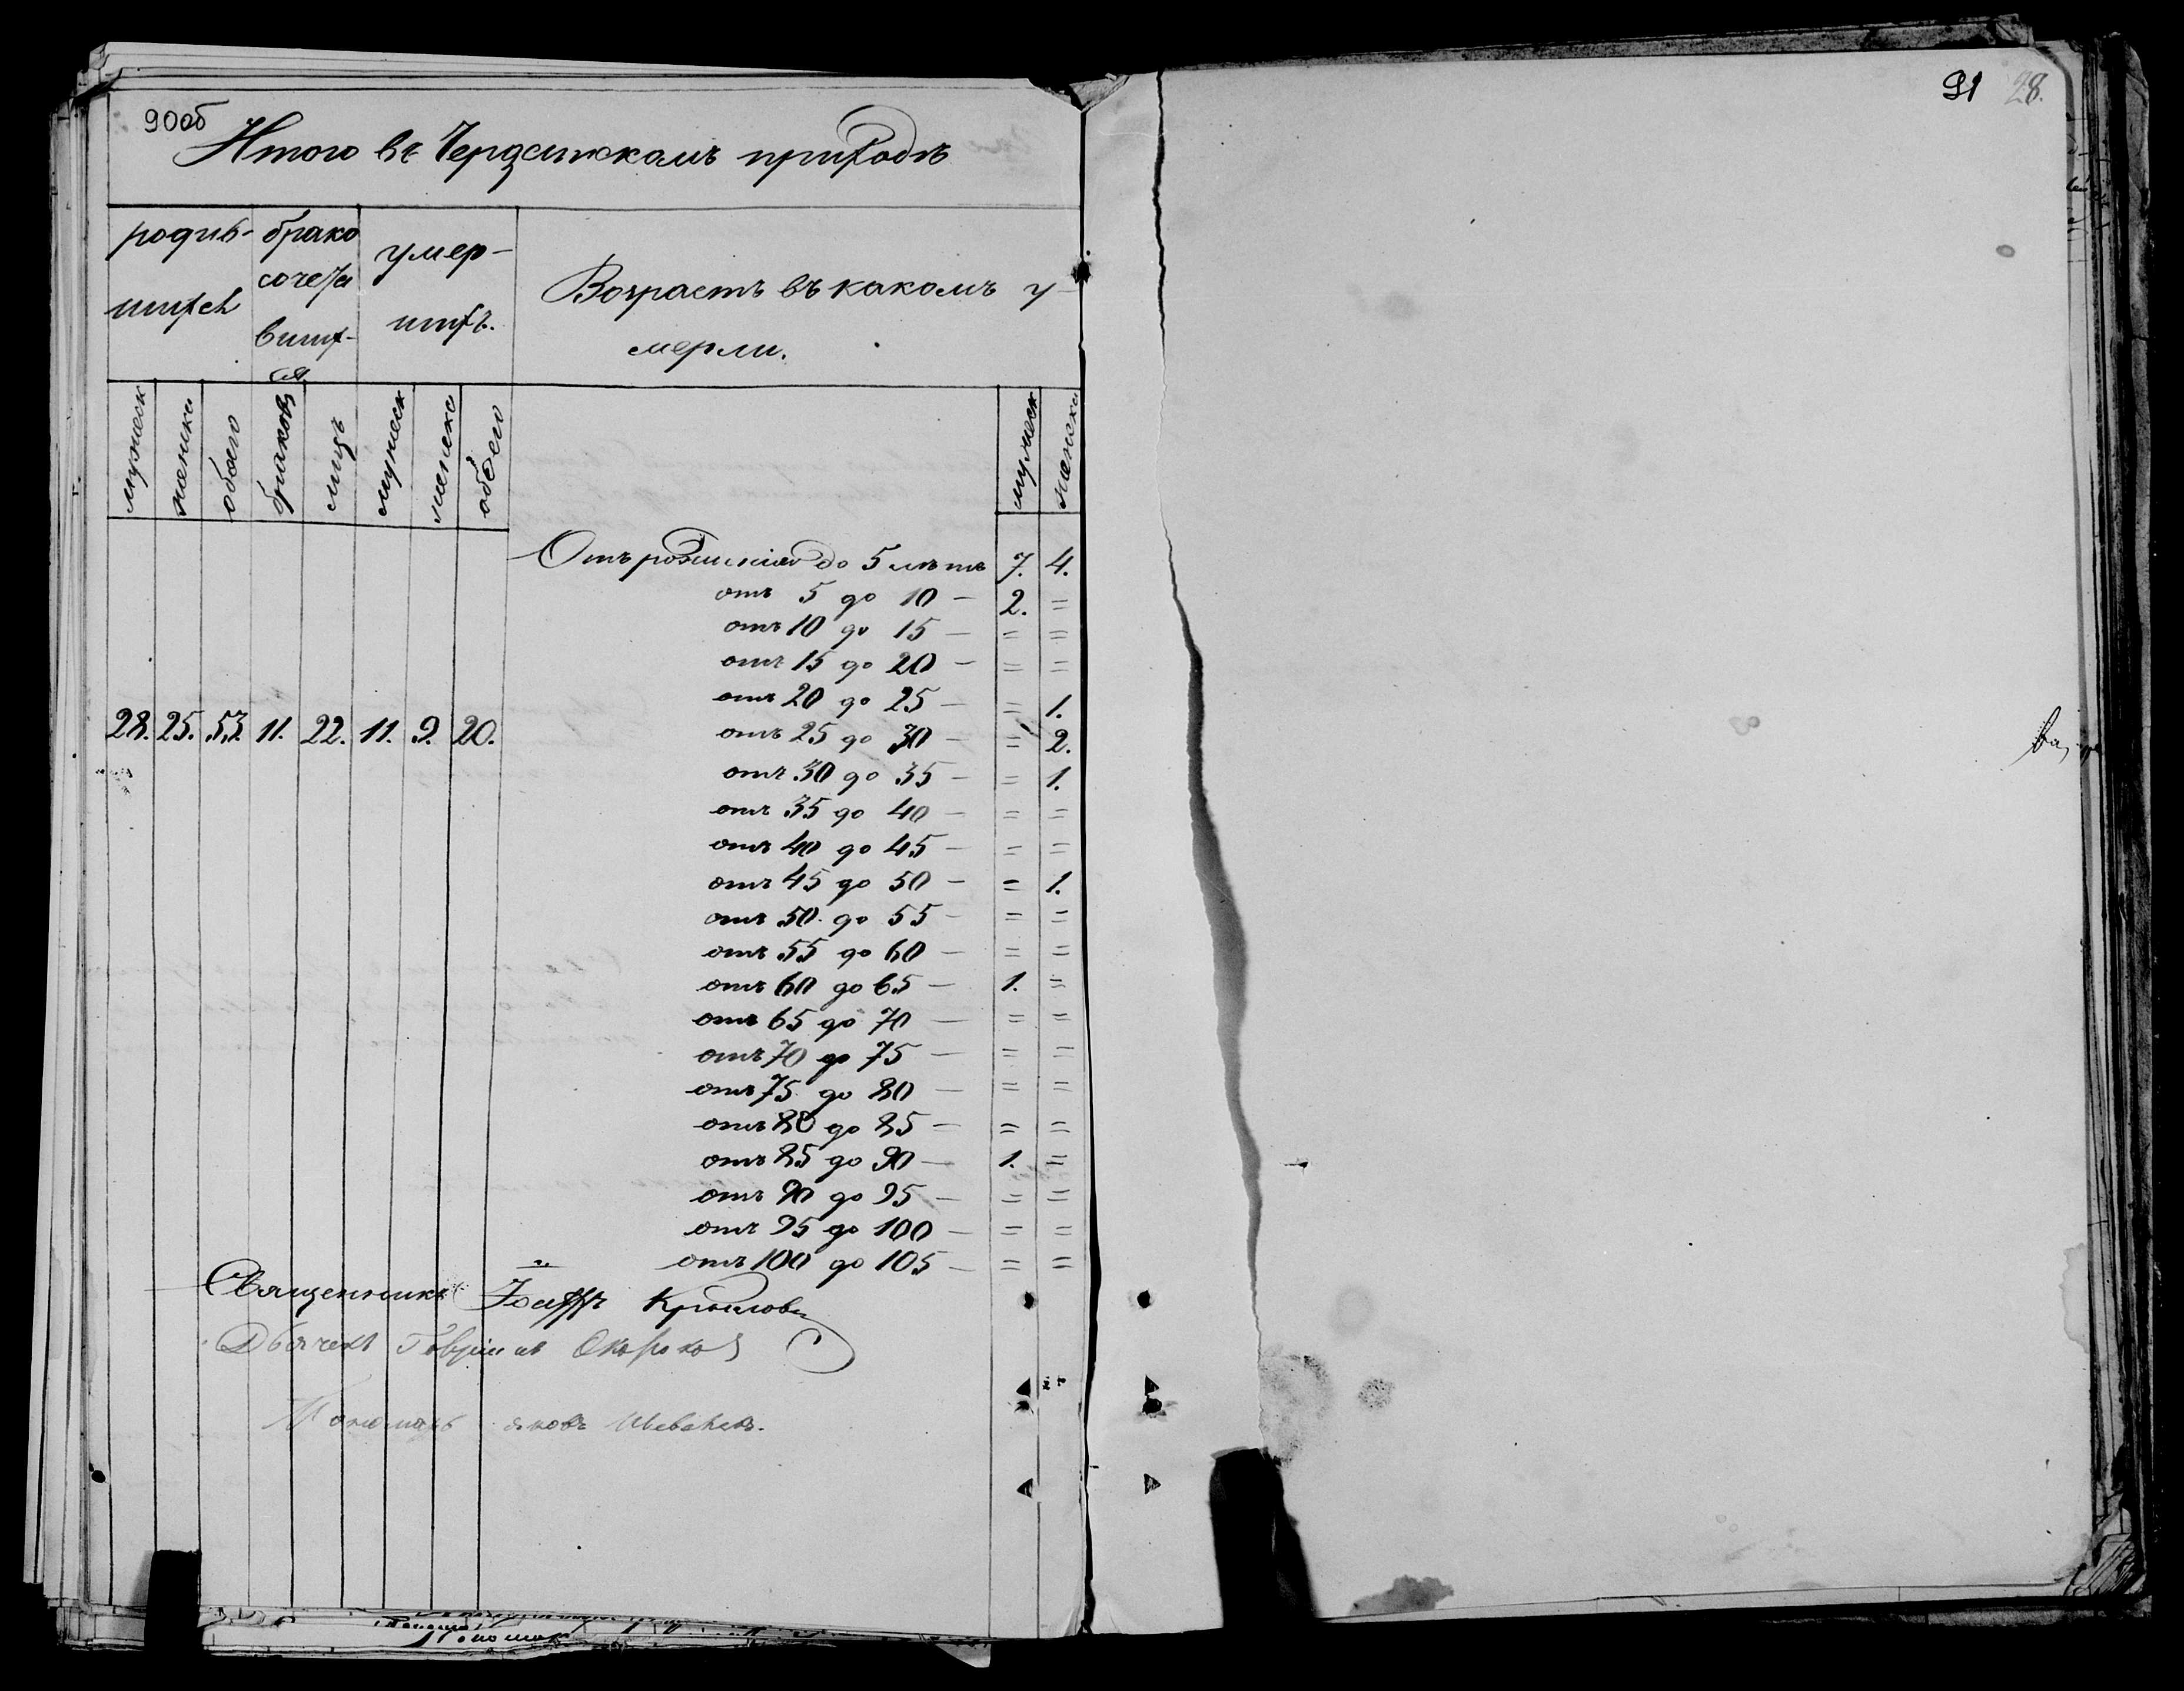 90об
Итого въ приходѣ
родив-
шихся
брако
сочета
вших-
ся
умер-
шихъ.
Возрастъ въ какомъ у-
мерли.
мужеск
женска
обоего
браковъ
лицъ
мужеск
женска
обоего
мужеск
женска
28. 25. 53. 11. 22. 11. 9. 20.
Отъ рожденія до 5 лѣтъ 7. 4.
отъ 5 до 10 — 2. =
отъ 10 до 15 — = =
отъ 15 до 20 — = =
отъ 20 до 25 — = 1.
отъ 25 до 30 — = 2.
отъ 30 до 35 — = 1.
отъ 35 до 40 — = =
отъ 40 до 45 — = =
отъ 45 до 50 — = 1.
отъ 50 до 55 — = =
отъ 55 до 60 — = =
отъ 60 до 65 — 1. =
отъ 65 до 70 — = =
отъ 70 до 75 — = =
отъ 75 до 80 — = =
отъ 80 до 85 — = =
отъ 85 до 90 — 1. =
отъ 90 до 95 — = =
отъ 95 до 100 — = =
отъ 100 до 105 — = =
Священникъ Крыловъ
Дьячекъ Гавріилъ
Пономарь Яковъ
91 28.